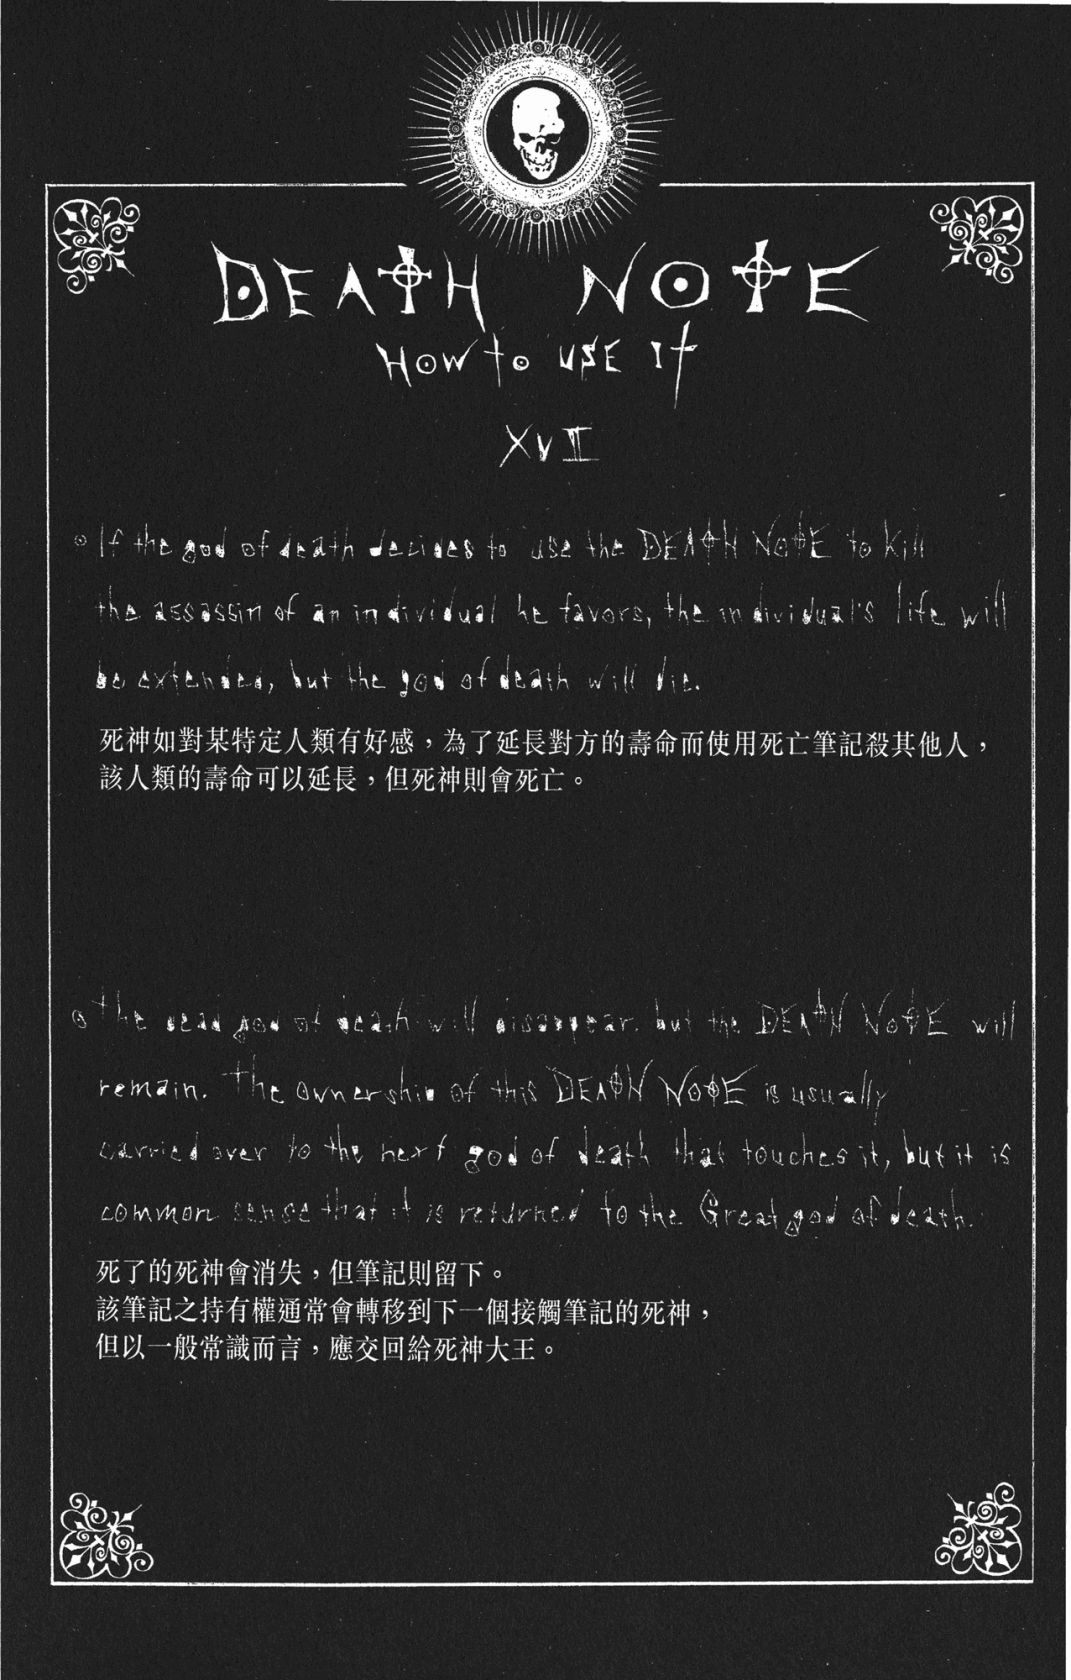 DEATH NOTE
HOW to USE It
XVII
If the god of death decides to use the DEATH NOTE to kill
the assassin of an individual he favors, the individual's life will
be extended, but the god of death will die.
死神如對某特定人類有好感，為了延長對方的壽命而使用死亡筆記殺其他人，
該人類的壽命可以延長，但死神則會死亡。
The dead god of death will disappear, but the DEATH NOTE will
remain. The ownership of this DEATH NOTE is usually
carried over to the next god of death that touches it, but it is
common sense that it is returned to the Great god of death.
死了的死神會消失，但筆記則留下。
該筆記之持有權通常會轉移到下一個接觸筆記的死神，
但以一般常識而言，應交回給死神大王。